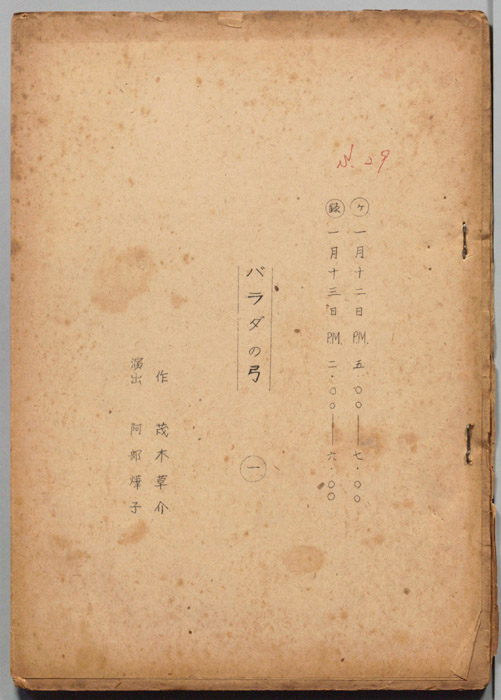 N. 29
ケ 一月十二日 P.M. 五・〇〇——七・〇〇
録 一月十三日 P.M. 二・〇〇——六・〇〇
バラダの弓
一
作 茂木草介
演出 阿部燁子